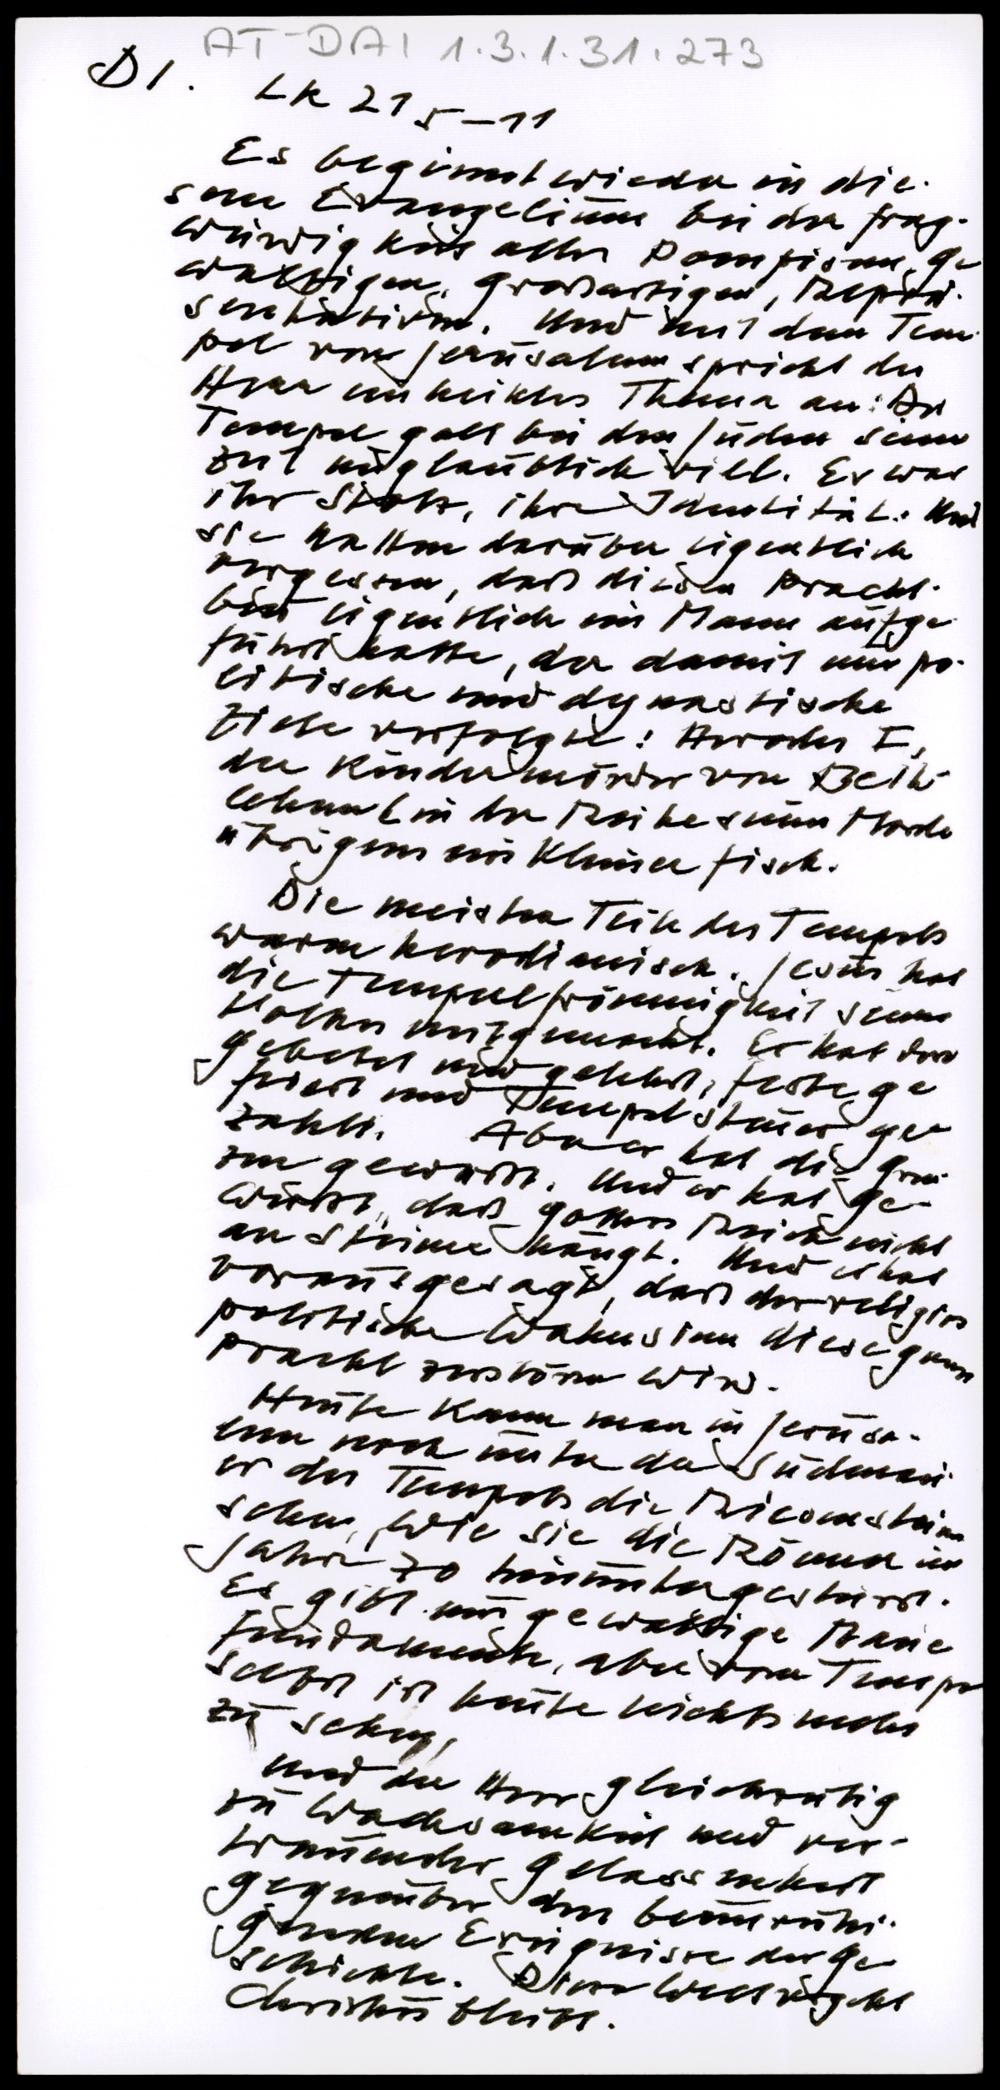 AT-DAI 1.3.1.31.273
DI. Lk 21 5-11
Es beginnt wieder in die-
sem Evangelium bei der frag-
würdigkeit alles Pompösen, ge
waltigen, großartigen, Reprä-
sentativen. Und mit dem Tem-
pel von Jerusalem spricht der
Herr ein heikles Thema an: Der
Tempel galt bei den Juden seiner
zeit unglaublich viel. Er war
ihr Stolz, ihre Identität. Und
sie hatten darüber eigentlich
vergessen, daß diesen Pracht-
bau eigentlich ein Mann aufge
führt hatte, der damit nur po-
litische und dynastische
Ziele verfolgte: Herodes I,
der Kindermörder von Beth-
lehem (in der Reihe seiner Morde
übrigens ein kleiner fisch.
Die meisten Teile des Tempels
waren herodianisch. Jesus hat
die Tempelfrömmigkeit seines
Volkes mitgemacht. Er hat dort
gebetet und gelehrt, feste ge
feiert und Tempelsteuer ge-
zahlt. Aber er hat die gren-
zen gewußt. Und er hat ge-
wußt, daß gottes Reich nicht
an Steinen hängt. Und er hat
vorausgesagt, daß der religiös
politische Wahnsinn diese ganze
pracht zerstören wird.
Heute kann man in Jerusa-
lem noch unter der Südmau-
er des Tempels die Riesensteine
sehen, wie sie die Römer im
Jahre 70 hinuntergestürzt.
Es gibt nur gewaltige
fundamente, aber vom Tempel
selbst ist heute nichts mehr
zu sehen,
Und der Herr gleichzeitig
zu Wachsamkeit und ver-
trauender gelassenheit
gegenüber den beunruhi-
genden Ereignisse der ge-
schichte. Diese Welt vergeht
Christus bleibt.